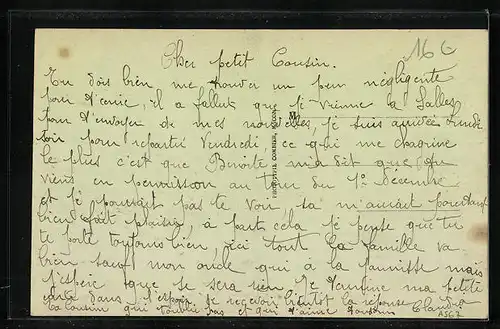 Cher petit Cousin.
166
Tu dois bien me trouver un peu négligente
pour t'ecrire, il a fallut que je vienne a Salles
pour t'envoyer de mes nouvelles, je suis arrivée
soir pour repartir Vendredi ce qui me chagrine
le plus c'est que Benoite m'a dit que tu
viens en permission au tour du 1° decembre
et je pourrait pas te voir sa m'aurait pourtant
bien fait plaisir, a part cela je pense que tu
te porte toujours bien, ici tout la famille va
bien sauf mon oncle qui à la jaunisse mais
j'espère que se sera rien je termine ma petite
carte dans l'espoir de recevoir bientot la réponse Claudia
ta Cousine qui t'oublie pas et qui t'aime
PHOTOTYPIE COMBIER MACON